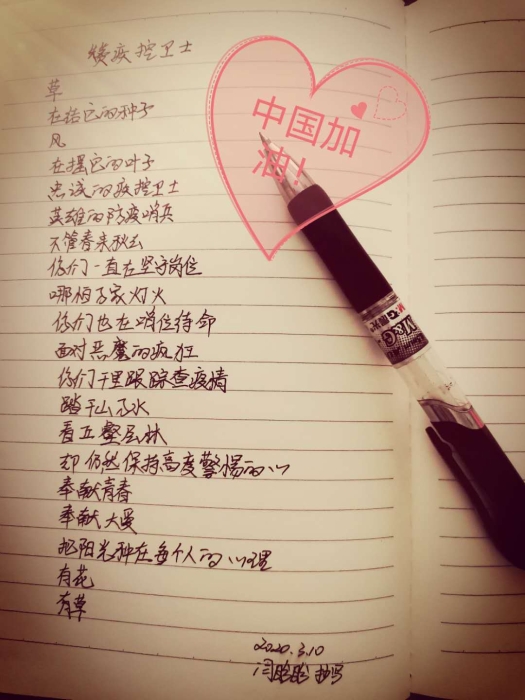 疾控卫士
草
在结它的种子
风
在摇它的叶子
忠诚的疾控卫士
英雄的防疫哨兵
不管春来秋去
你们一直在坚守岗位
哪怕万家灯火
你们也在哨位待命
面对恶魔的疯狂
你们千里跟踪查疫情
踏千山万水
看壑层林
却仍然保持高度警惕的心
奉献青春
奉献大爱
把阳光种在每个人的心理
有花
有草
2020.3.10
抄写
中国加
油！
M&G